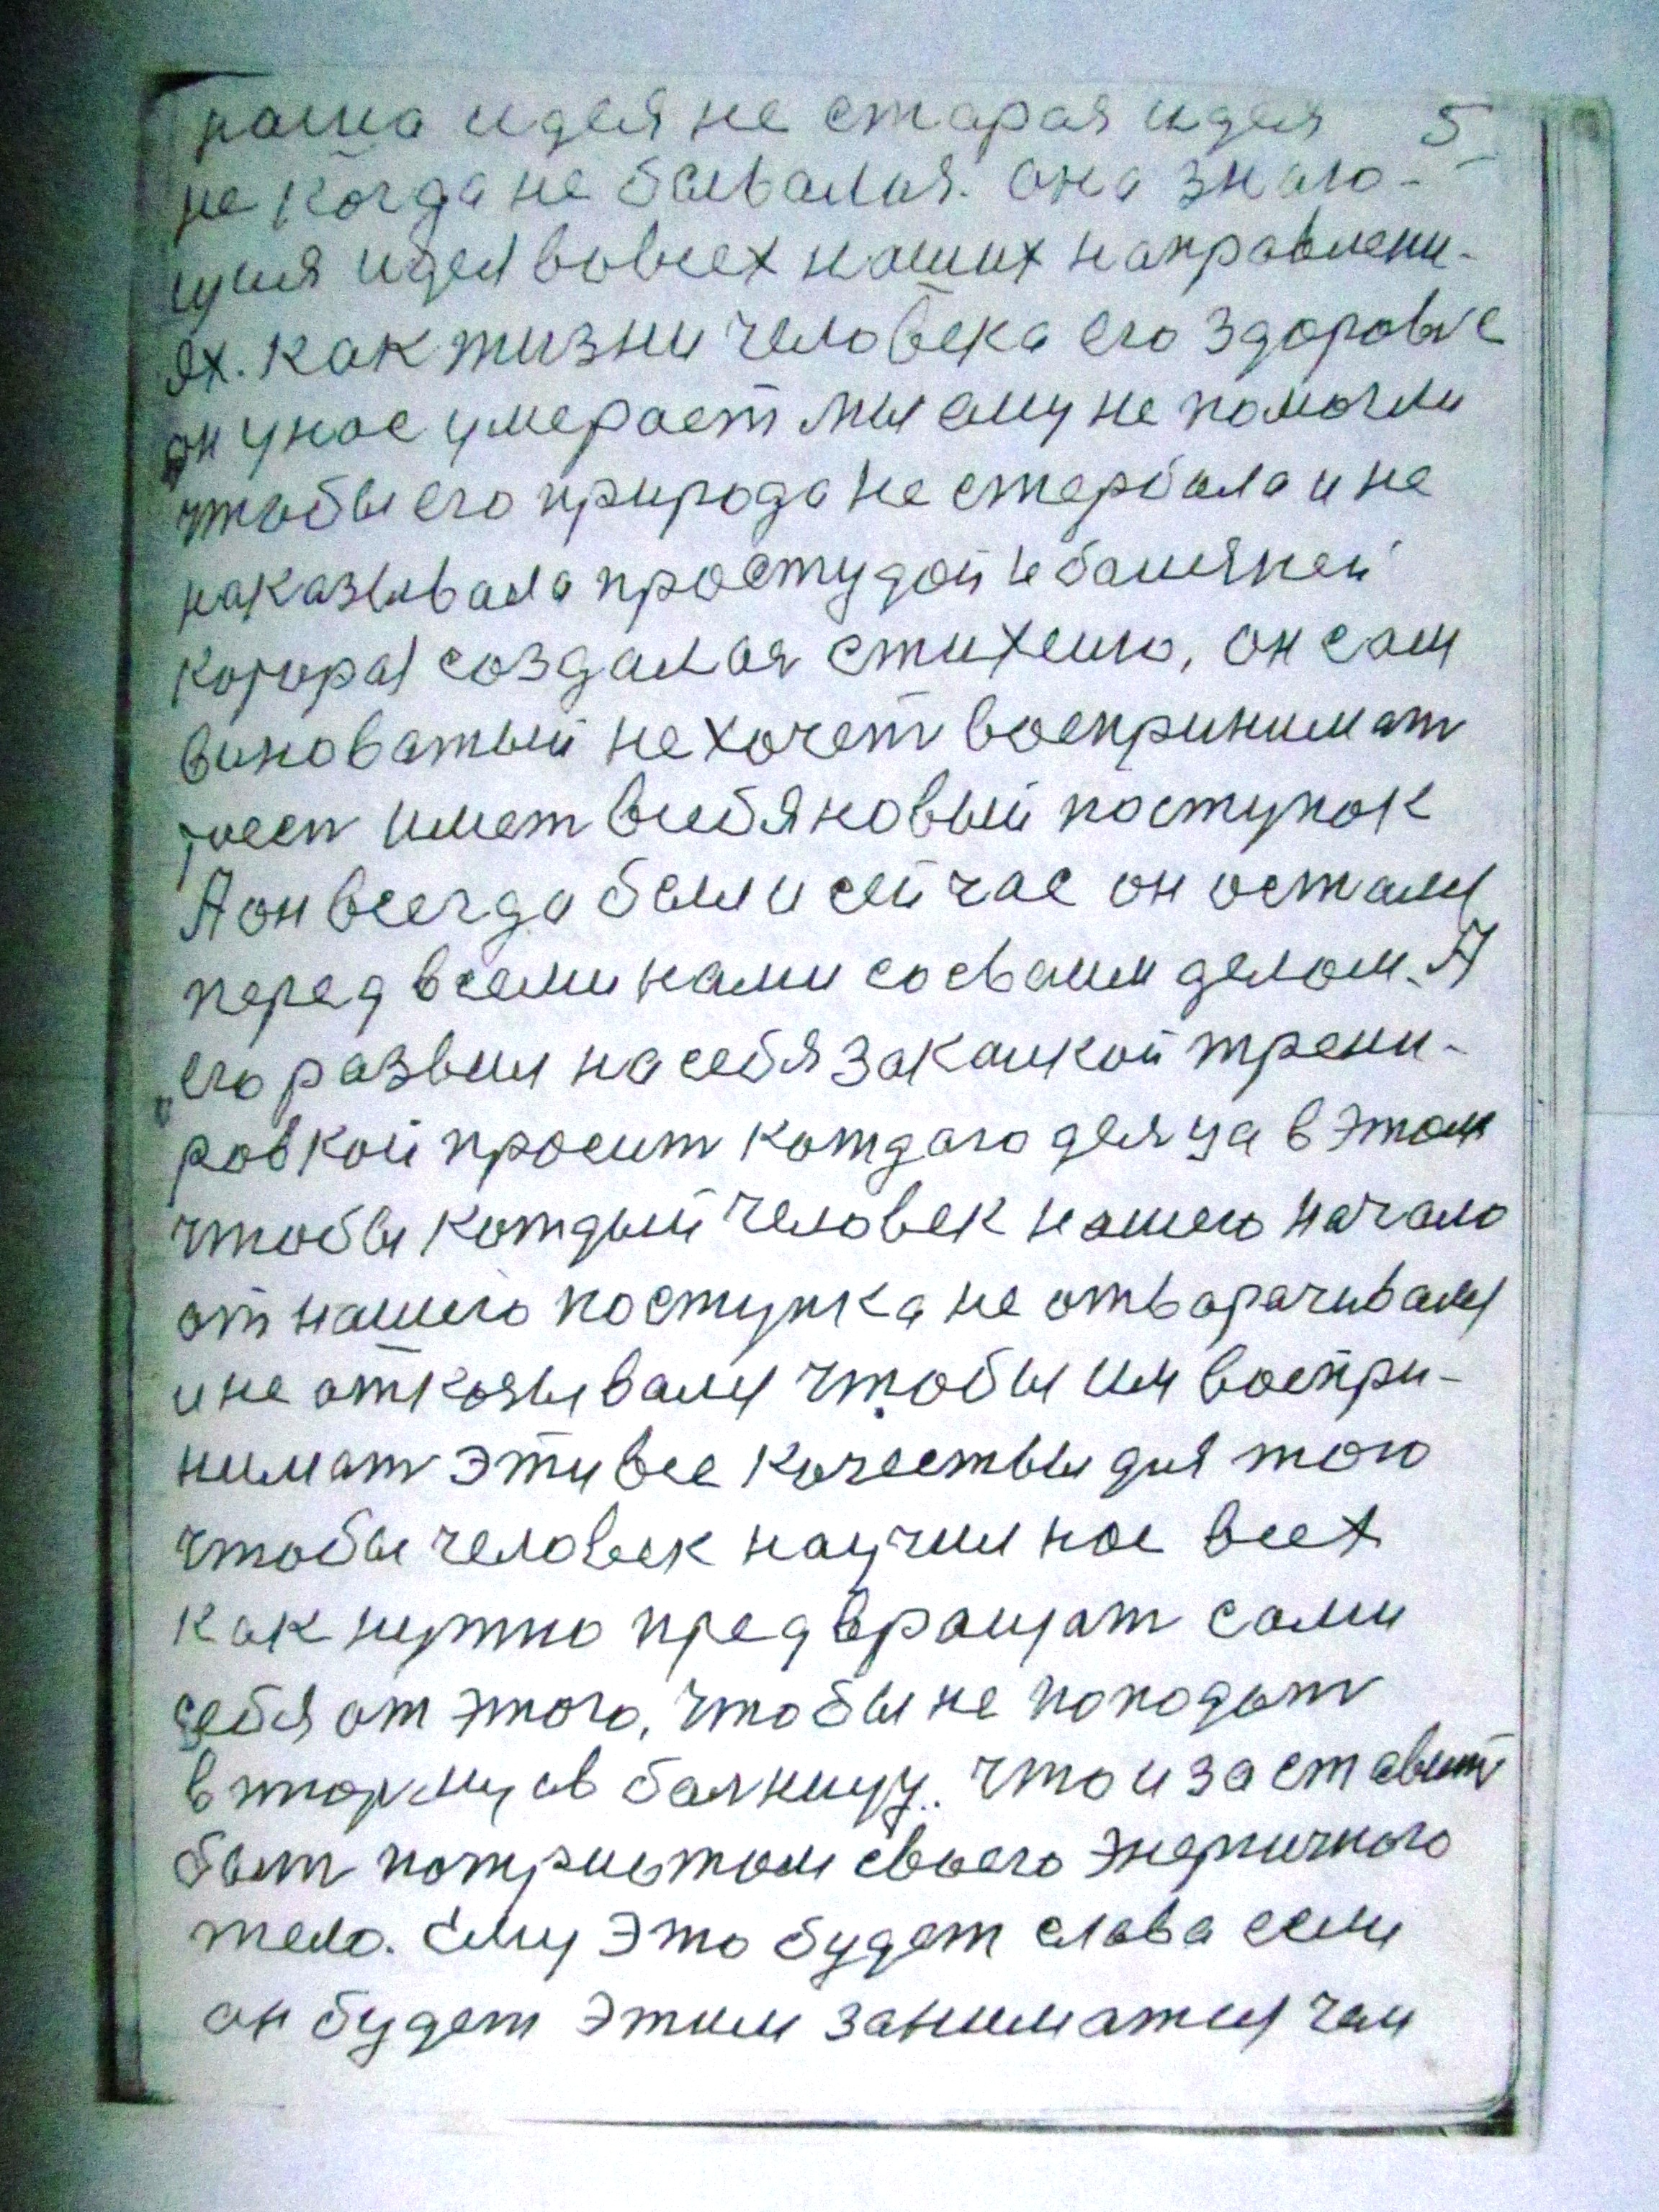 наша идея не старая идея 5
не когда не бывалая. она знаю-
щия идея вовсех наших направлени-
ях. как жизни человека его здоровие
он унас умерает мы ему не помогли
чтобы его природа не стербила и не
наказывала простудой и балезней
которая создалая стихеию, он сам
виноватый не хочет воспринимат
тоесп имет всибя новый поступок
А он всегда был и сейчас он осталс
перед всеми нами со сваим делом. А
его развил на себя закалкой трени-
ровкой просит каждаго деляца в этом
чтобы каждый человек нашего начало
от нашего поступка не отварачивался
и не отказывался чтобы им воспри-
нимат эти все качествы для того
чтобы человек научил нас всех
как нужно предвращат сами
себя от этого, чтобы не попадат
в тюрму ив балницу. что и заставит
быт патриотом своего энергичного
тело. Ему это будет слава если
он будет этим заниматися чем